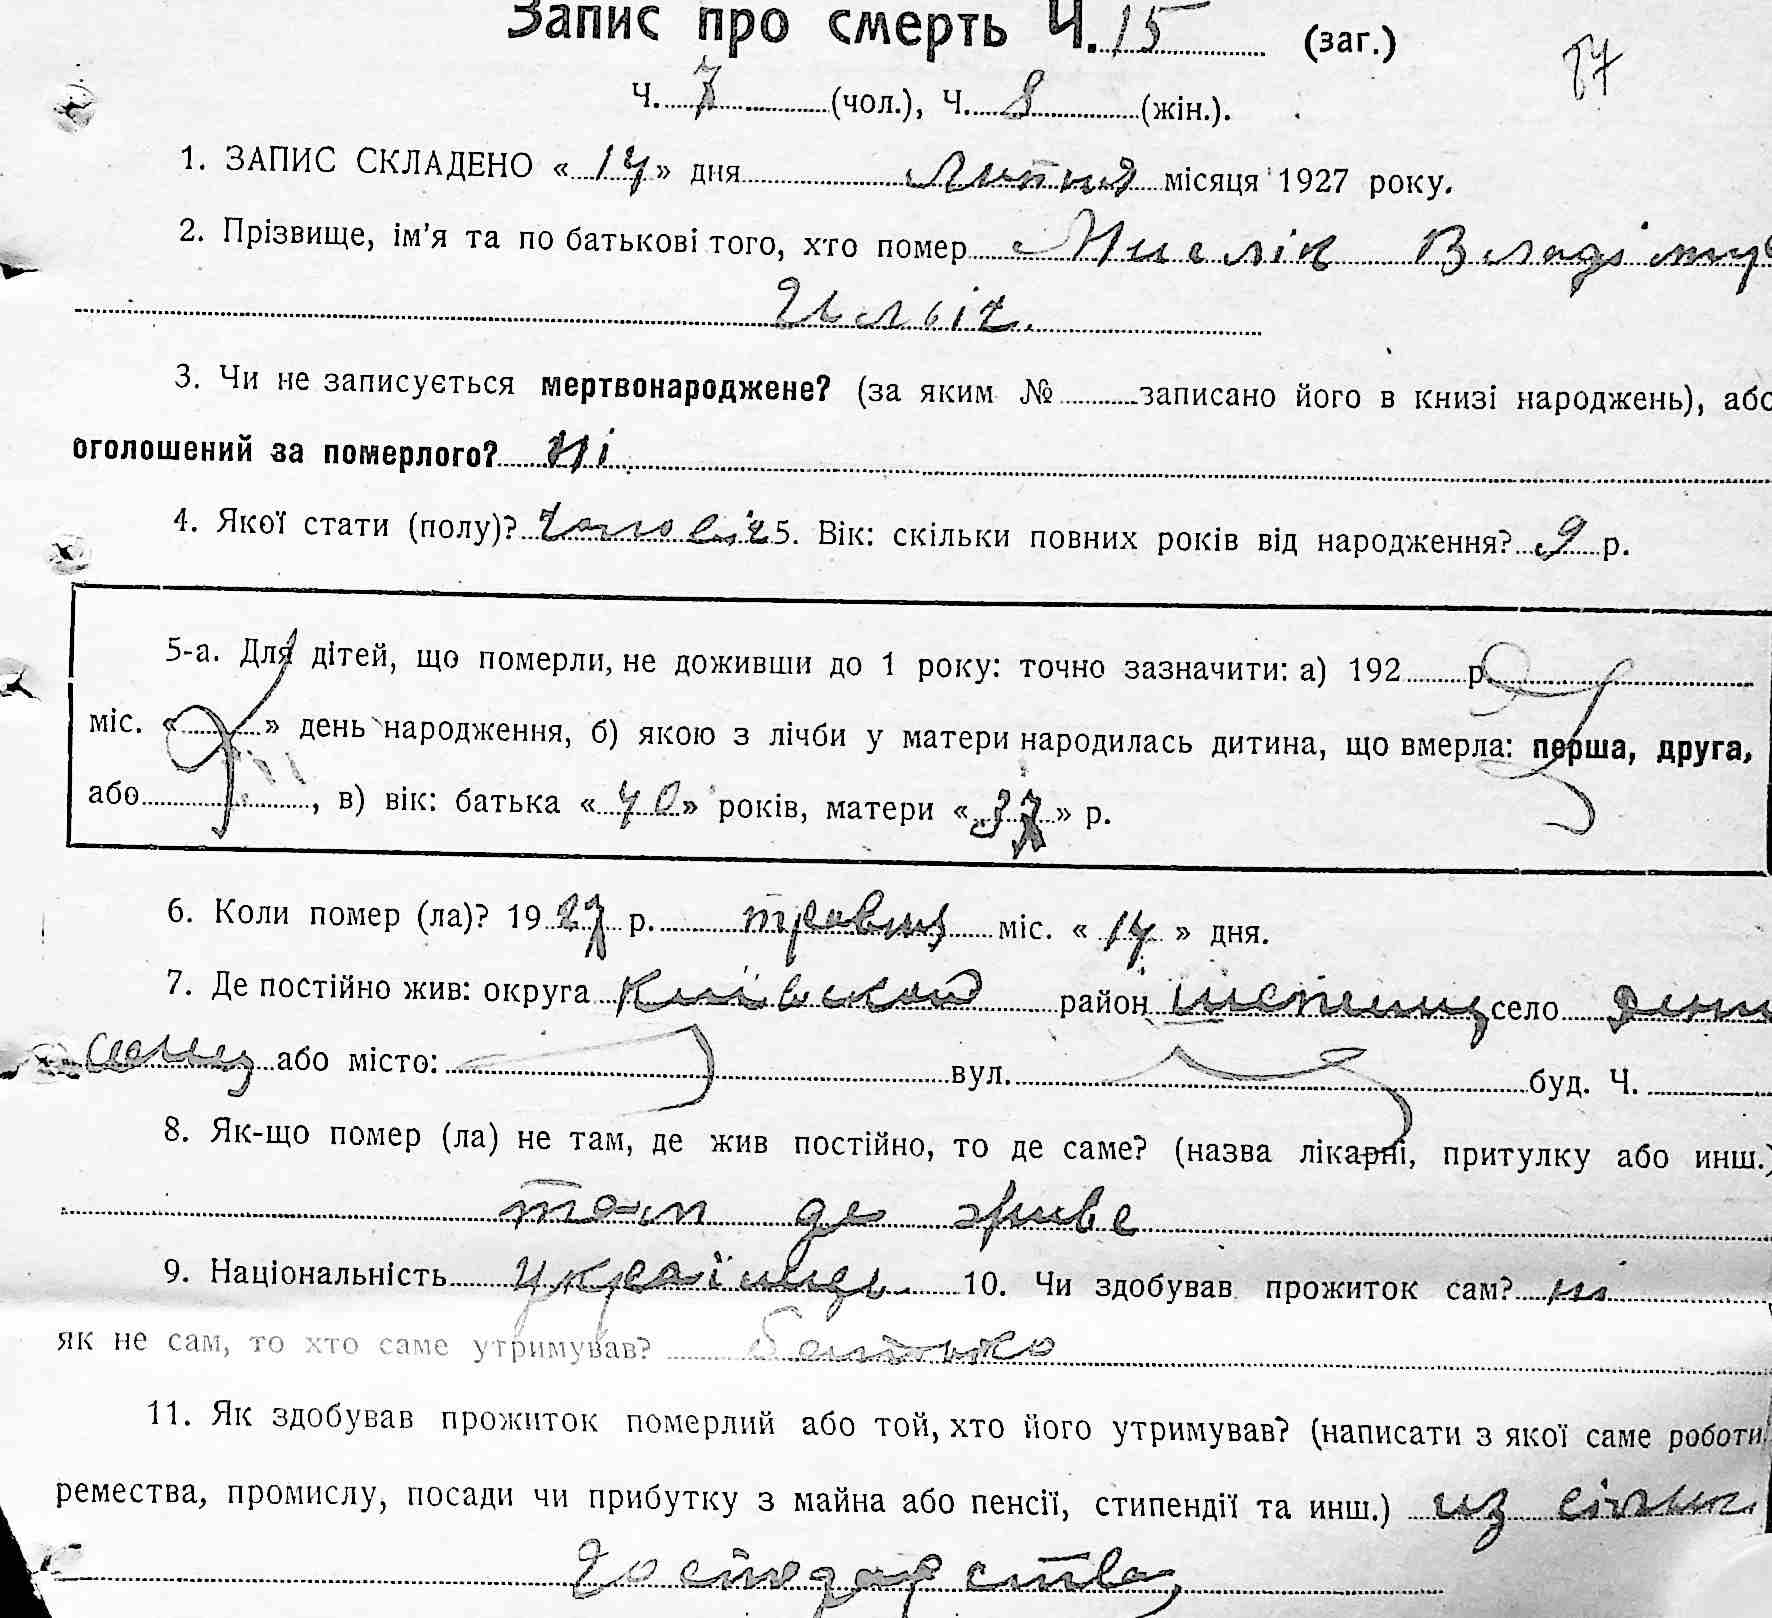 Запис про смерть Ч. 15 (заг.)
87
Ч. 7 (чол.), Ч. 8 (жін.).
1. ЗАПИС СКЛАДЕНО « 14 » дня липня місяця 1927 року.
2. Прізвище, ім'я та по батькові того, хто помер Владімир
Ильіч.
3. Чи не записується мертвонароджене? (за яким № записано його в книзі народжень), або
оголошений за померлого? Ні
4. Якої стати (полу)? чоловіч 5. Вік: скільки повних років від народження? 9 р.
5-а. Для дітей, що померли, не доживши до 1 року: точно зазначити: а) 192 р.
міс. « » день народження, б) якою з лічби у матери народилась дитина, що вмерла: перша, друга,
або , в) вік: батька « 40 » років, матери « 37 » р.
6. Коли помер (ла)? 19 27 р. травня міс. « 14 » дня.
7. Де постійно жив: округа Київскай район село
або місто: вул. буд. Ч.
8. Як-що помер (ла) не там, де жив постійно, то де саме? (назва лікарні, притулку або инш.)
там де живе
9. Національність українць 10. Чи здобував прожиток сам? ні
як не сам, то хто саме утримував? батько
11. Як здобував прожиток померлий або той, хто його утримував? (написати з якої саме роботи,
ремества, промислу, посади чи прибутку з майна або пенсії, стипендії та инш.) из сільск.
господарства